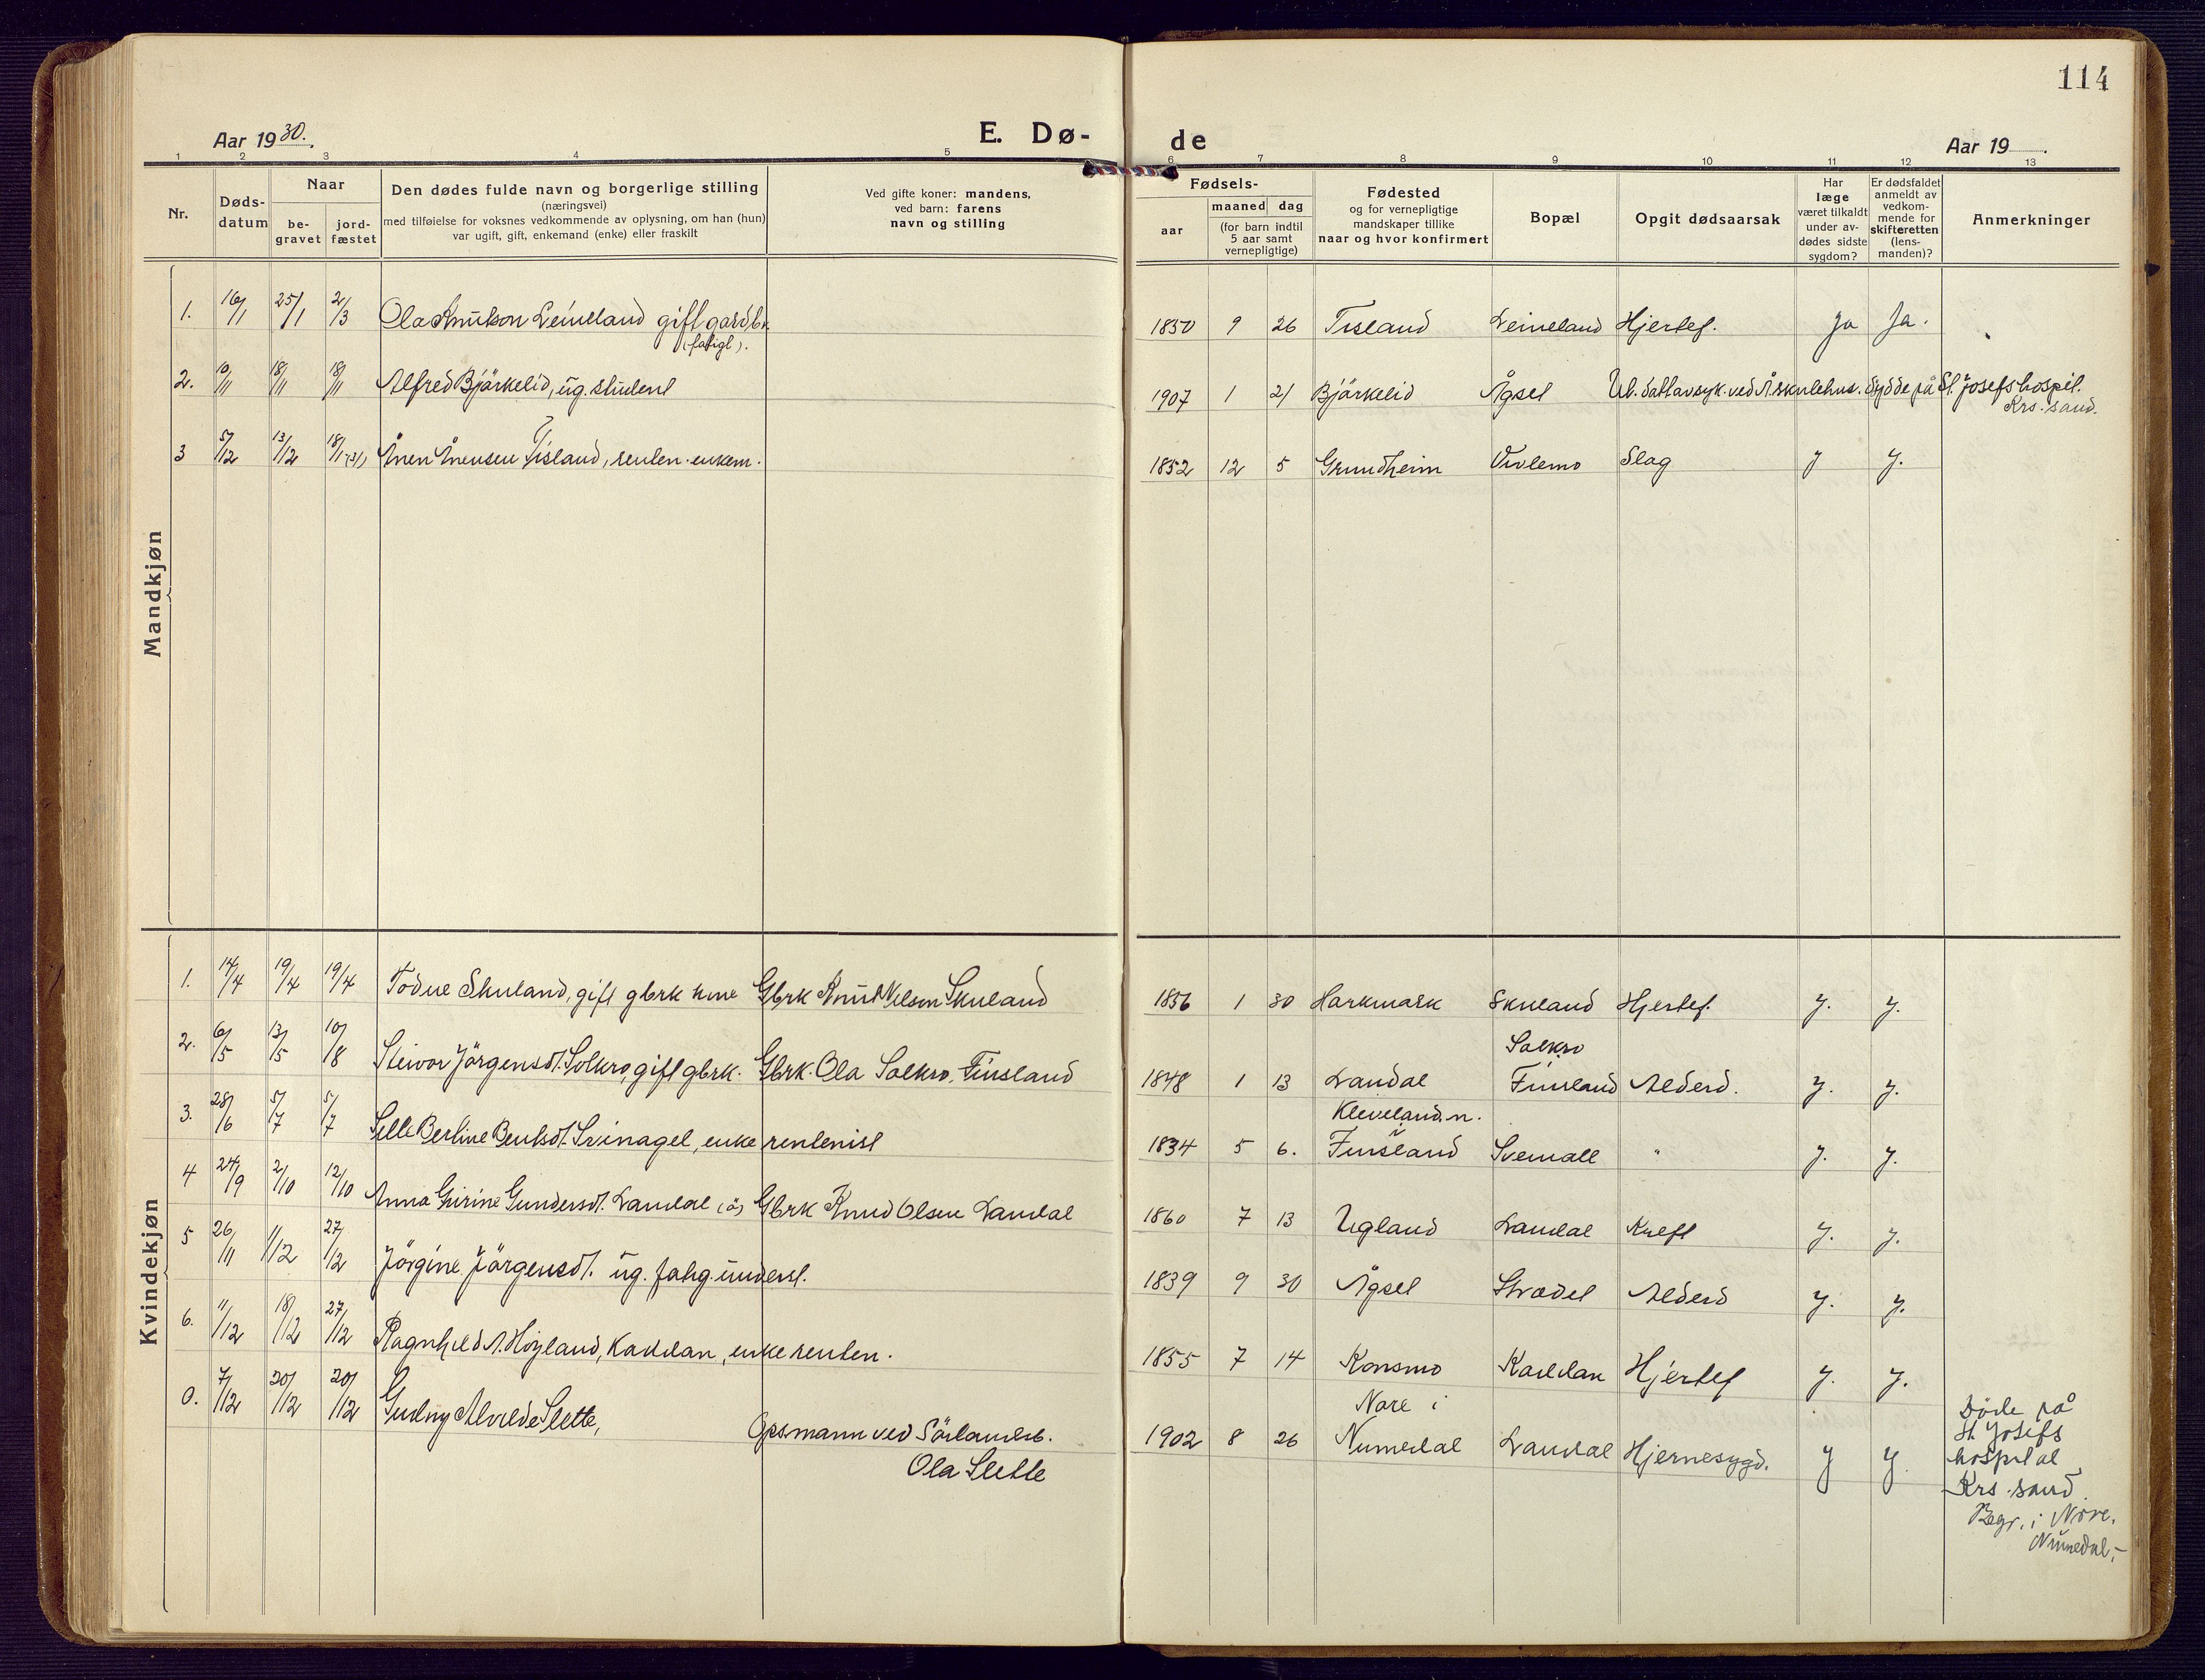 114
Aar 1930.
E. Dø-
de
Aar 19 .
1 2 3 4 5 6 7 8 9 10 11 12 13
Nr.
Døds-
datum
Naar
be-
gravet
jord-
fæstet
Den dødes fulde navn og borgerlige stilling
(næringsvei)
med tilføielse for voksnes vedkommende av oplysning, om han (hun)
var ugift, gift, enkemand (enke) eller fraskilt
Ved gifte koner: mandens,
ved barn: farens
navn og stilling
Fødsels-
aar
maaned dag
(for barn indtil
5 aar samt
vernepligtige)
Fødested
og for vernepligtige
mandskaper tillike
naar og hvor konfirmert
Bopæl
Opgit dødsaarsak
Har
læge
været tilkaldt
under av-
dødes sidste
sygdom?
Er dødsfaldet
anmeldt av
vedkom-
mende for
skifteretten
(lens-
manden)?
Anmerkninger
Mandkjøn
1. 16/1 25/1 2/3 Ola Knutson Leineland gift gardbr. 1850 9 26 Tisland Leineland Hjertef. Ja Ja.
2. 10/11 18/11 18/11 Alfred Bjärkelid, ug. student 1907 1 21 Bjärkelid Ågsel Ul. datt av syk. ved Å. skulehus. Dydde på St. Josefs hospit.
Krs.sand.
3 5/12 13/12 18/1 (31) Ånen Ånensen Tisland, renten. enkem. 1852 12 5 Grundheim Vivlemo Slag J J.
Kvindekjøn
1. 14/4 19/4 19/4 Todne Skuland, gift gbrk kone Gbrk Knut Nilsen Skuland 1856 1 30 Harkmark Skuland Hjertef. J. J.
Solkro
2. 6/5 13/5 10/8 Steivor Jörgensdt. Solkro, gift gbrk. Gbrk. Ola Solkro, Finsland 1848 1 13 Laudal Finsland Alderd. J. J.
Kleveland n. i
3. 28/6 5/7 5/7 Selle Bertine Bentsdt. Svinagel, enke rentenist 1834 5 6. Finsland Svenall " J. J.
4 24/9 2/10 12/10 Anna Gurine Gundersdt. Laudal Gbrk Knud Olsen Laudal 1860 7 13 Ugland Laudal Kreft J. J.
5 26/11 1/12 27/12 Jörgine Jörgensdt. ug. fatig. underst. 1839 9 30 Ågsel Stradel Alderd J. J.
6. 11/12 18/12 27/12 Ragnhild A. Höyland, Kaddan, enke renten. 1855 7 14 Konsmo Kaddan Hjertef J. J.
0. 7/12 20/12 20/12 Gudny Alvilde Slette, Opsmann ved Sörlandsb. Ola Slette 1902 8 26 Nore i
Numedal Laudal Hjernesygd. J J.
Döde på
St. Josefs
hospital
Krs.sand.
Begr. i Nore,
Numedal.-